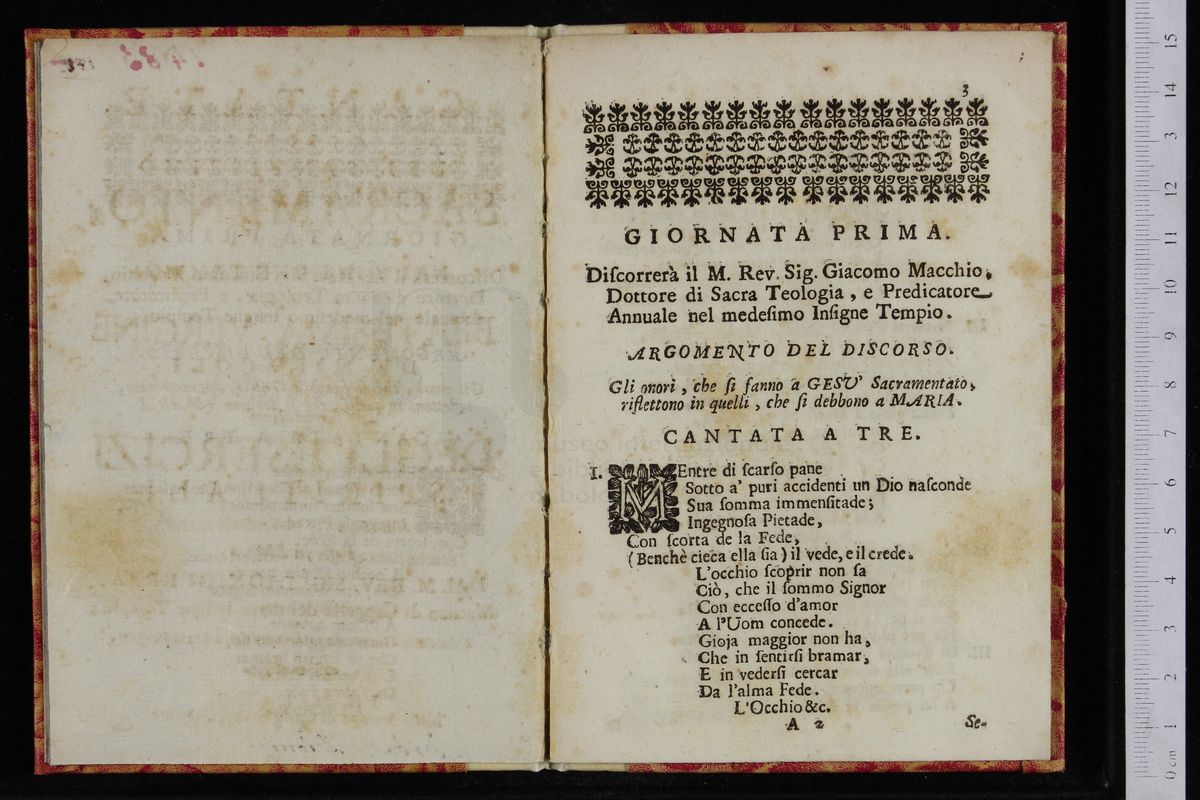 3
GIORNATA PRIMA.
Diſcorrerà il M. Rev. Sig. Giacomo Macchio,
Dottore di Sacra Teologia, e Predicatore
Annuale nel medeſimo Inſigne Tempio.
ARGOMENTO DEL DISCORSO.
Gli onori, che ſi fanno a GESU' Sacramentato,
riflettono in quelli, che ſi debbono a MARIA.
CANTATA A TRE.
I. MEntre di ſcarſo pane
Sotto a' puri accidenti un Dio naſconde
Sua ſomma immenſitade;
Ingegnoſa Pietade,
Con ſcorta de la Fede,
(Benchè cieca ella ſia) il vede, e il crede.
L'occhio ſcoprir non ſa
Ciò, che il ſommo Signor
Con ecceſſo d'amor
A l'Uom concede.
Gioja maggior non ha,
Che in ſentirſi bramar,
E in vederſi cercar
Da l'alma Fede.
L'Occhio &c.
A 2
Se-